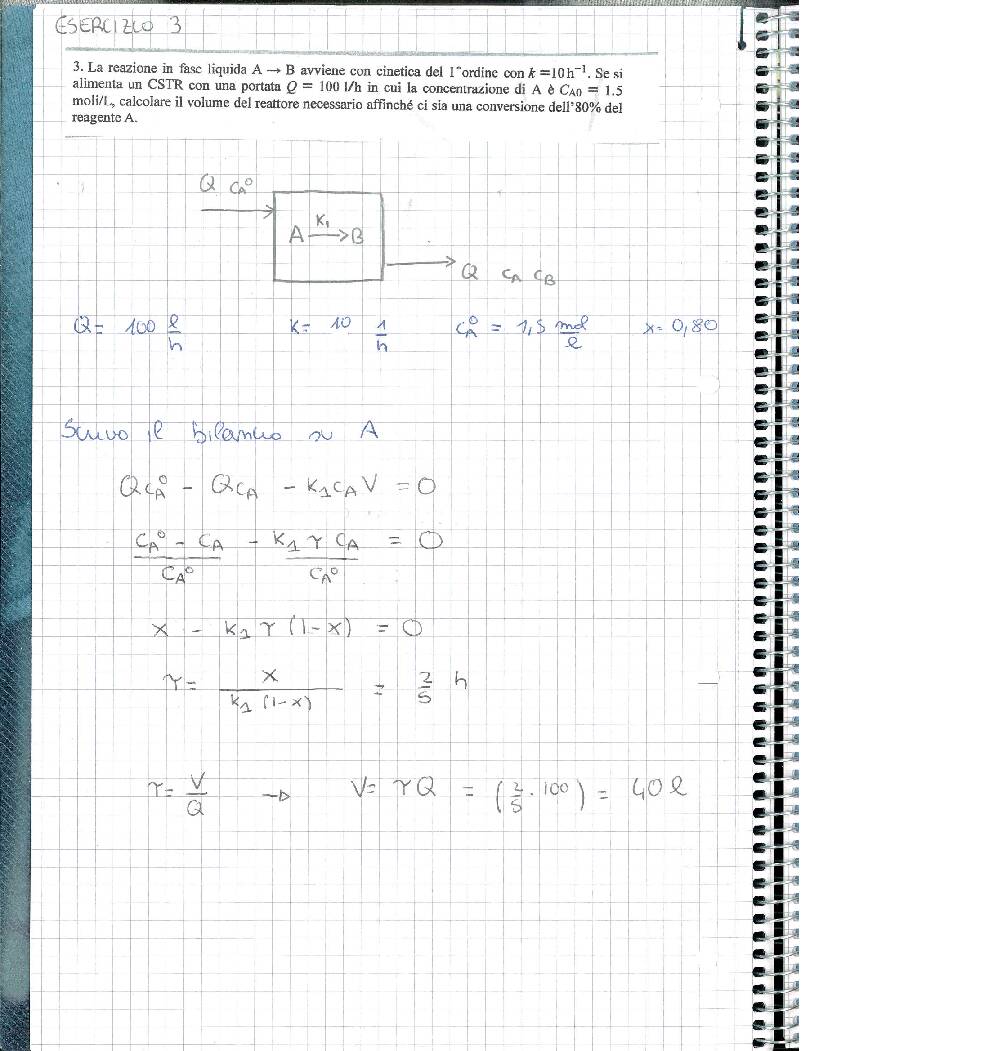 ESERCIZIO 3
3. La reazione in fase liquida A → B avviene con cinetica del 1°ordine con k =10 h⁻¹. Se si
alimenta un CSTR con una portata Q = 100 l/h in cui la concentrazione di A è C_A0 = 1.5
moli/L, calcolare il volume del reattore necessario affinché ci sia una conversione dell'80% del
reagente A.
Q C_A⁰
A —K₁→ B
Q C_A C_B
Q = 100 l/h K = 10 1/h C_A⁰ = 1,5 mol/l x = 0,80
Scrivo il bilancio su A
Q C_A⁰ - Q C_A - K₁ C_A V = 0
(C_A⁰ - C_A)/C_A⁰ - (K₁ τ C_A)/C_A⁰ = 0
x - K₁ τ (1-x) = 0
τ = x/(K₁ (1-x)) = 2/5 h
τ = V/Q → V = τ Q = (2/5 · 100) = 40 l